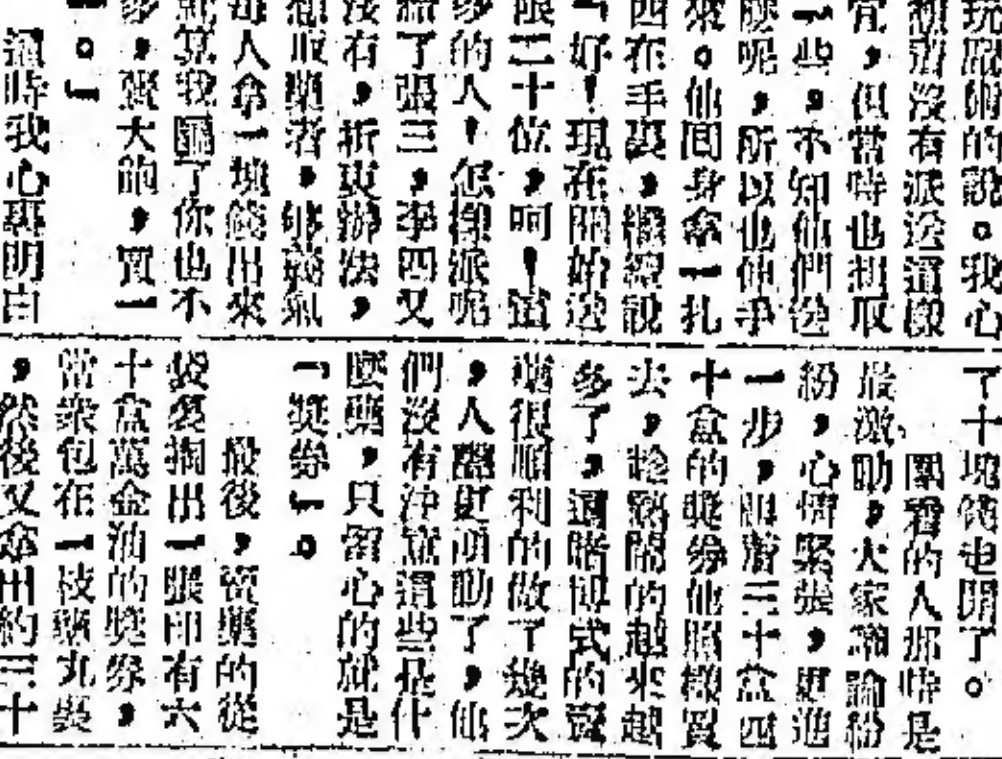 玩耍似的說。我心
想着沒有派送這樣
宜，但當時也想取
一些。不知他們送
麼呢，所以也伸手
來。他囘身拿一扎
四在手裏，繼續說
「好！現在開始送
限二十位，呵！這
多的人！怎樣派呢
給了張三，李四又
沒有，折衷辦法，
想取藥者，够義氣
每人拿一塊錢出來
就算我圖了你也不
多，發大的，買一
。」
這時我心裏明白
了十塊錢走開了。
圍看的人那時是
最激動，大家議論紛
紛，心情緊張，更進
一步，跟着三十盒四
十盒的獎券他照樣買
去，趁熱鬧的越來越
多了，這賭博式的賣
藥很順利的做了幾次
，人羣更頭動了，他
們沒有注意這些是什
麼藥，只留心的就是
「獎券」。
最後，賣藥的從
袋裏掏出一張印有六
十盒萬金油的獎券，
當衆包在一枝藥丸裝
，然後又拿出約三十